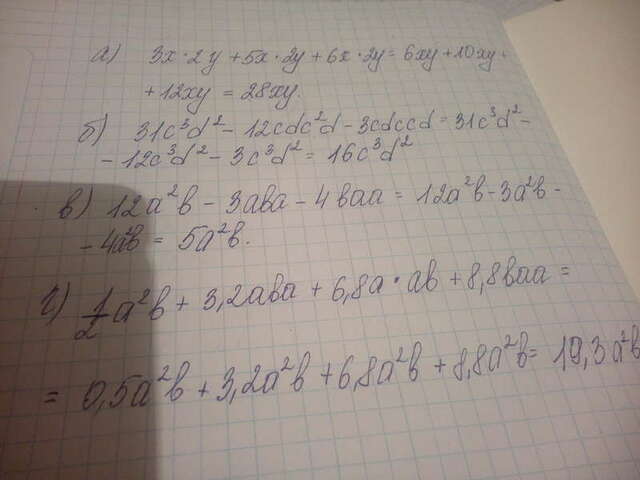 а) 3x·2y + 5x·2y + 6x·2y = 6xy + 10xy +
+ 12xy = 28xy.
б) 31c³d² - 12cdc²d - 3cdccd = 31c³d² -
- 12c³d² - 3c³d² = 16c³d²
в) 12a²b - 3aba - 4baa = 12a²b - 3a²b -
- 4a²b = 5a²b.
г) 1/2 a²b + 3,2aba + 6,8a·ab + 8,8baa =
= 0,5a²b + 3,2a²b + 6,8a²b + 8,8a²b = 19,3a²b